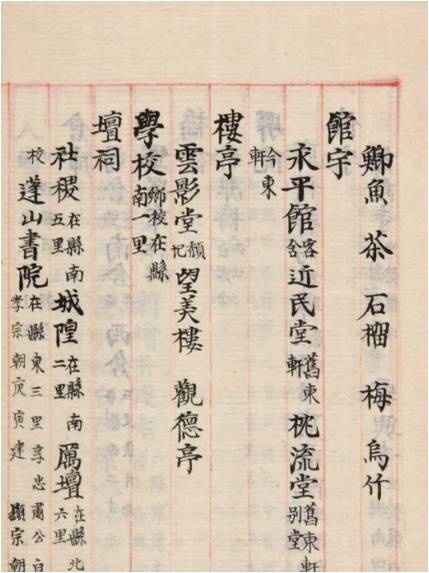 鯽魚 茶 石榴 梅 烏竹
館宇
永平館客舍近民堂舊東軒桃流堂舊東軒別堂
今東軒
樓亭
雲影堂頹圮望美樓 觀德亭
學校鄉校在縣南一里
壇祠
社稷在縣南五里城隍在縣南二里厲壇在縣北六里
校 蓬山書院在縣東三里享忠肅公白孝宗朝庚寅建 顯宗朝